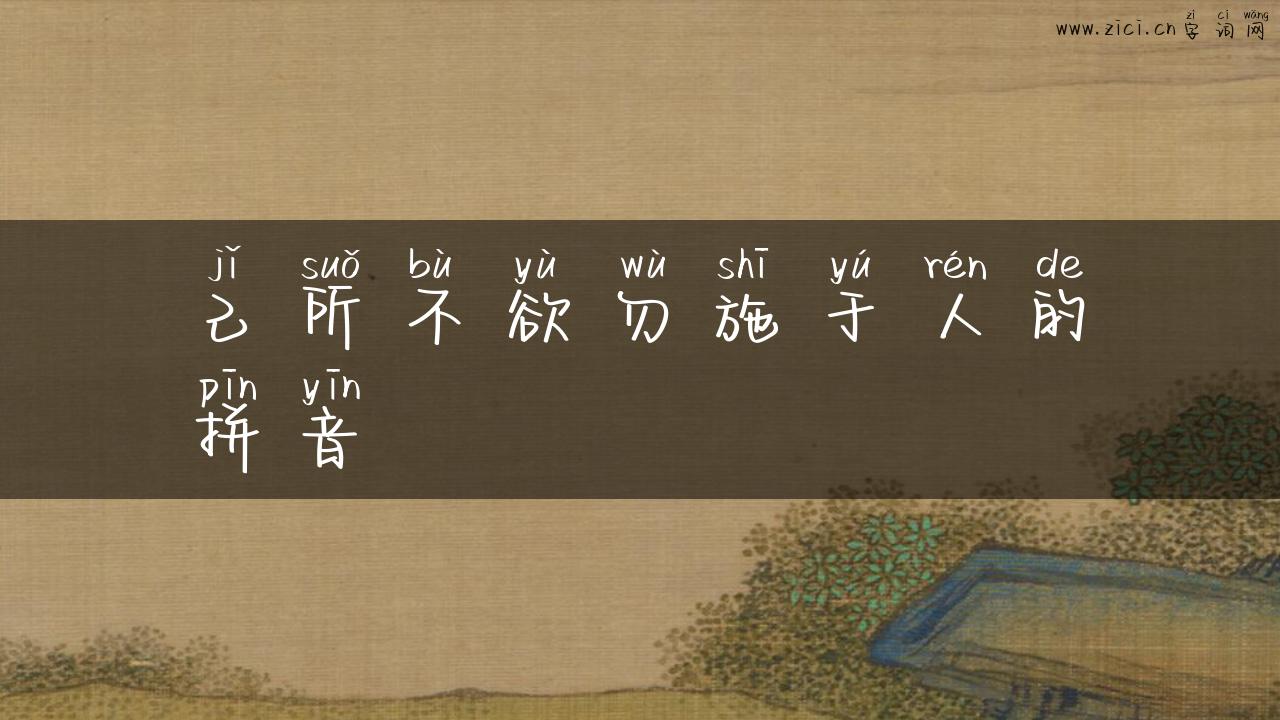 zì cí wǎng
www.zici.cn 字 词 网
jǐ suǒ bù yù wù shī yú rén de
己 所 不 欲 勿 施 于 人 的
pīn yīn
拼 音